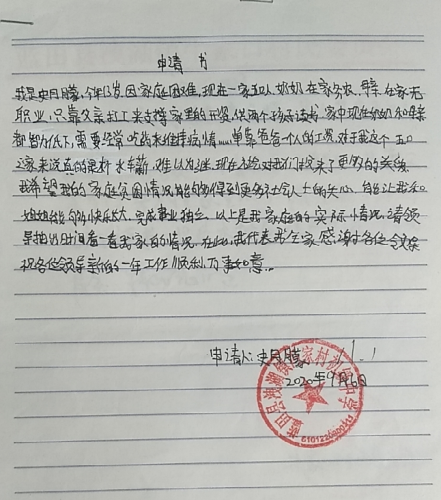 申请书
我是史月朦,今年13岁因家庭困难,现在一家五口人,奶奶在家务农,母亲在家无
职业,只靠父亲打工来支撑家里的开资,供两个孩子读书,家中现在奶奶和母亲
都智力低下,需要经常吃药来维持病情……单靠爸爸一个人的工资,对于我这个五口
之家来说真的是杯水车薪,难以为继,现在给我们找来了更多的关爱
我希望我的家庭贫困情况能够得到更多社会人士的关心,能让我和
姐姐能够快乐长大,完成事业独立,以上是我家庭的实际情况,请领
导抽出时间看一看我家的情况,在此,我代表我全家感谢各位叔叔
祝各位领导新的一年工作顺利,万事如意…
申请人:史月朦
2020年9月6日
蓝田县
初级中学